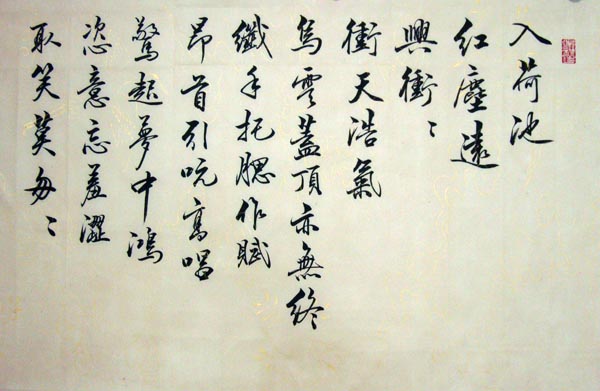 入荷池
红塵遠
興衝〻
衝天浩氣
烏雲蓋頂亦無終
纖手托腮作賦
昂首引吭高唱
驚起夢中鴻
恣意忘羞澀
取笑莫匆〻